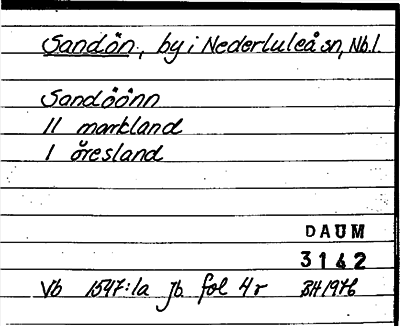 Sandön, by i Nederluleå sn, Nb.l.
Sandöönn
11 markland
1 öresland
DAUM
3142
Vb 1547:1a Jb fol 4r BH 1976